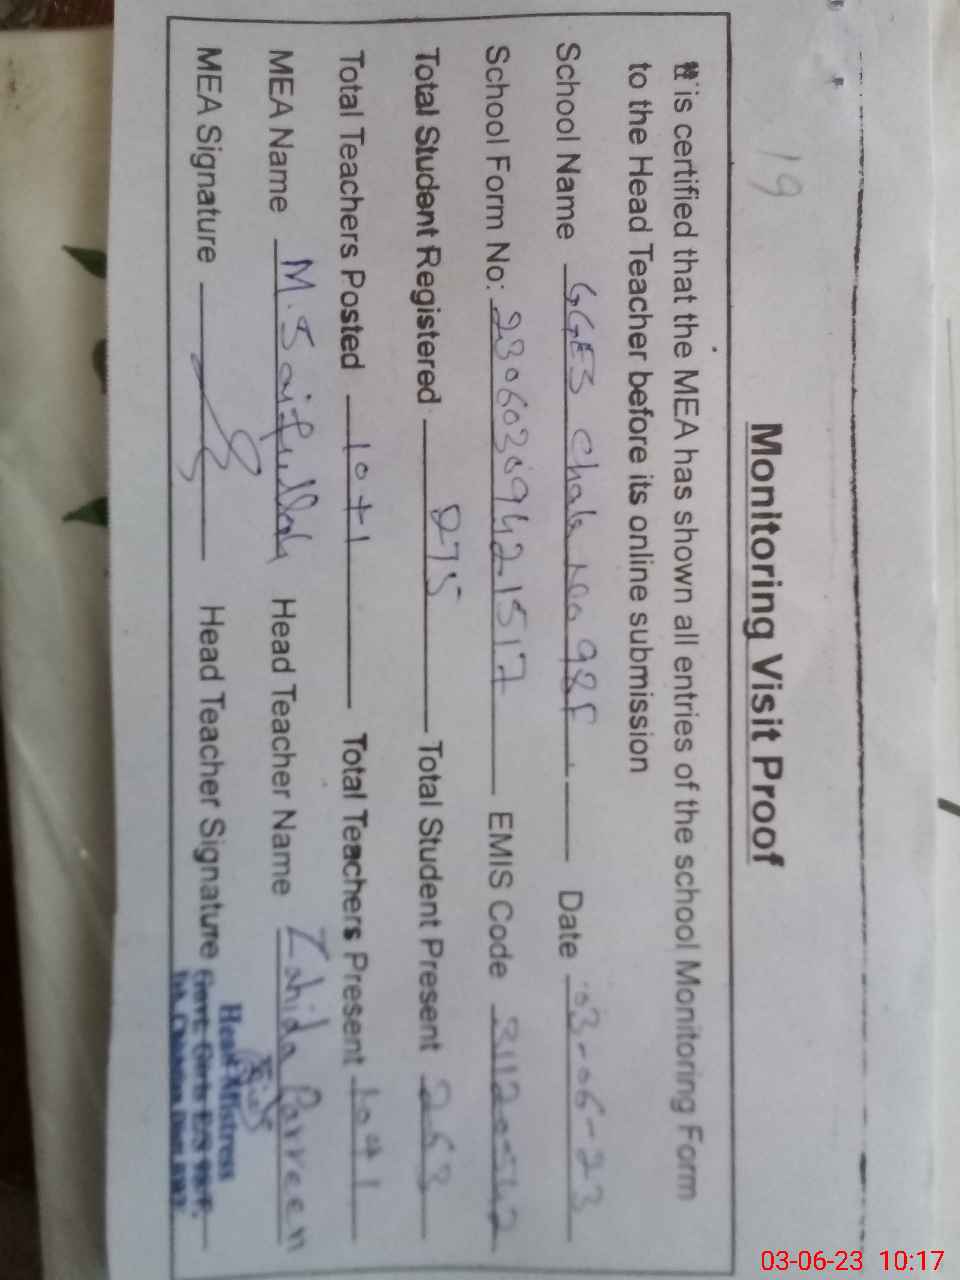 19
Monitoring Visit Proof
It is certified that the MEA has shown all entries of the school Monitoring Form
to the Head Teacher before its online submission
School Name GGES Chak no 98F Date 03-06-23
School Form No: 23060309421517 EMIS Code 31120542
Total Student Registered 275 Total Student Present 263
Total Teachers Posted 10+1 Total Teachers Present 10+1
MEA Name M. Saifullah Head Teacher Name Zahida Parveen
MEA Signature Head Teacher Signature
Head Mistress
Govt. Girls E/S 98/F.
03-06-23 10:17